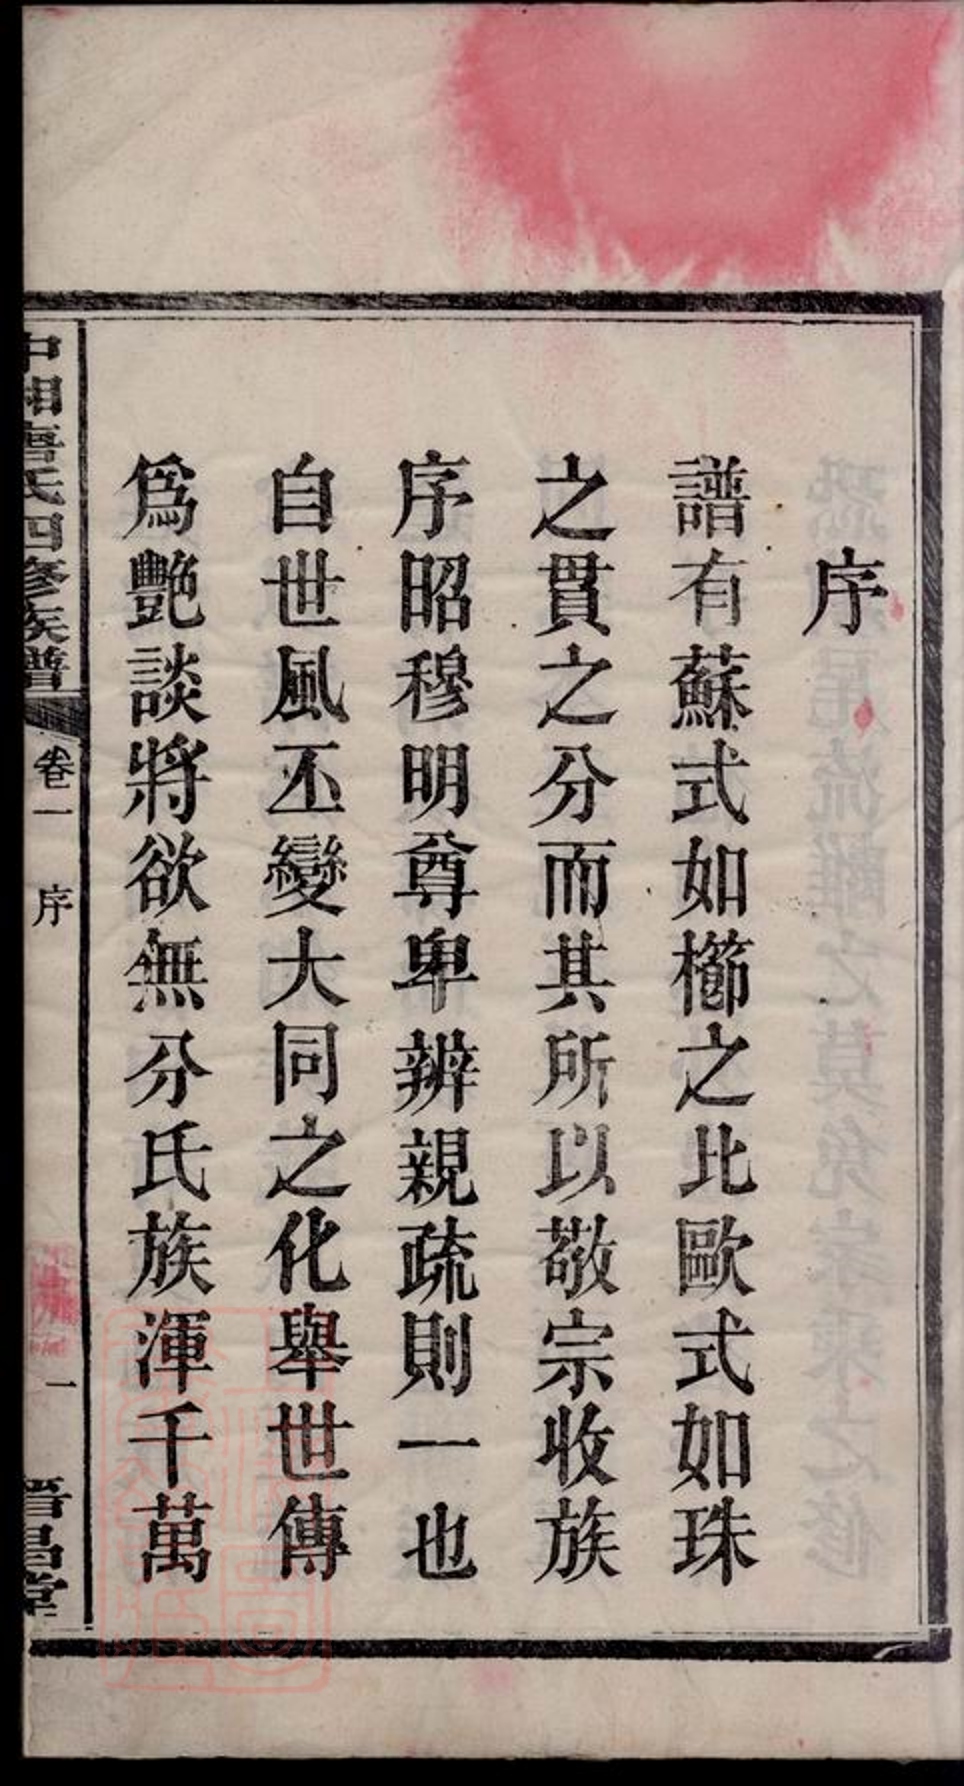 序
譜有蘇式如櫛之比歐式如珠
之貫之分而其所以敬宗收族
序昭穆明尊卑辨親疏則一也
自世風丕變大同之化舉世傳
爲艷談將欲無分氏族渾千萬
中湘唐氏四修族譜
卷一 序
一
晋昌堂